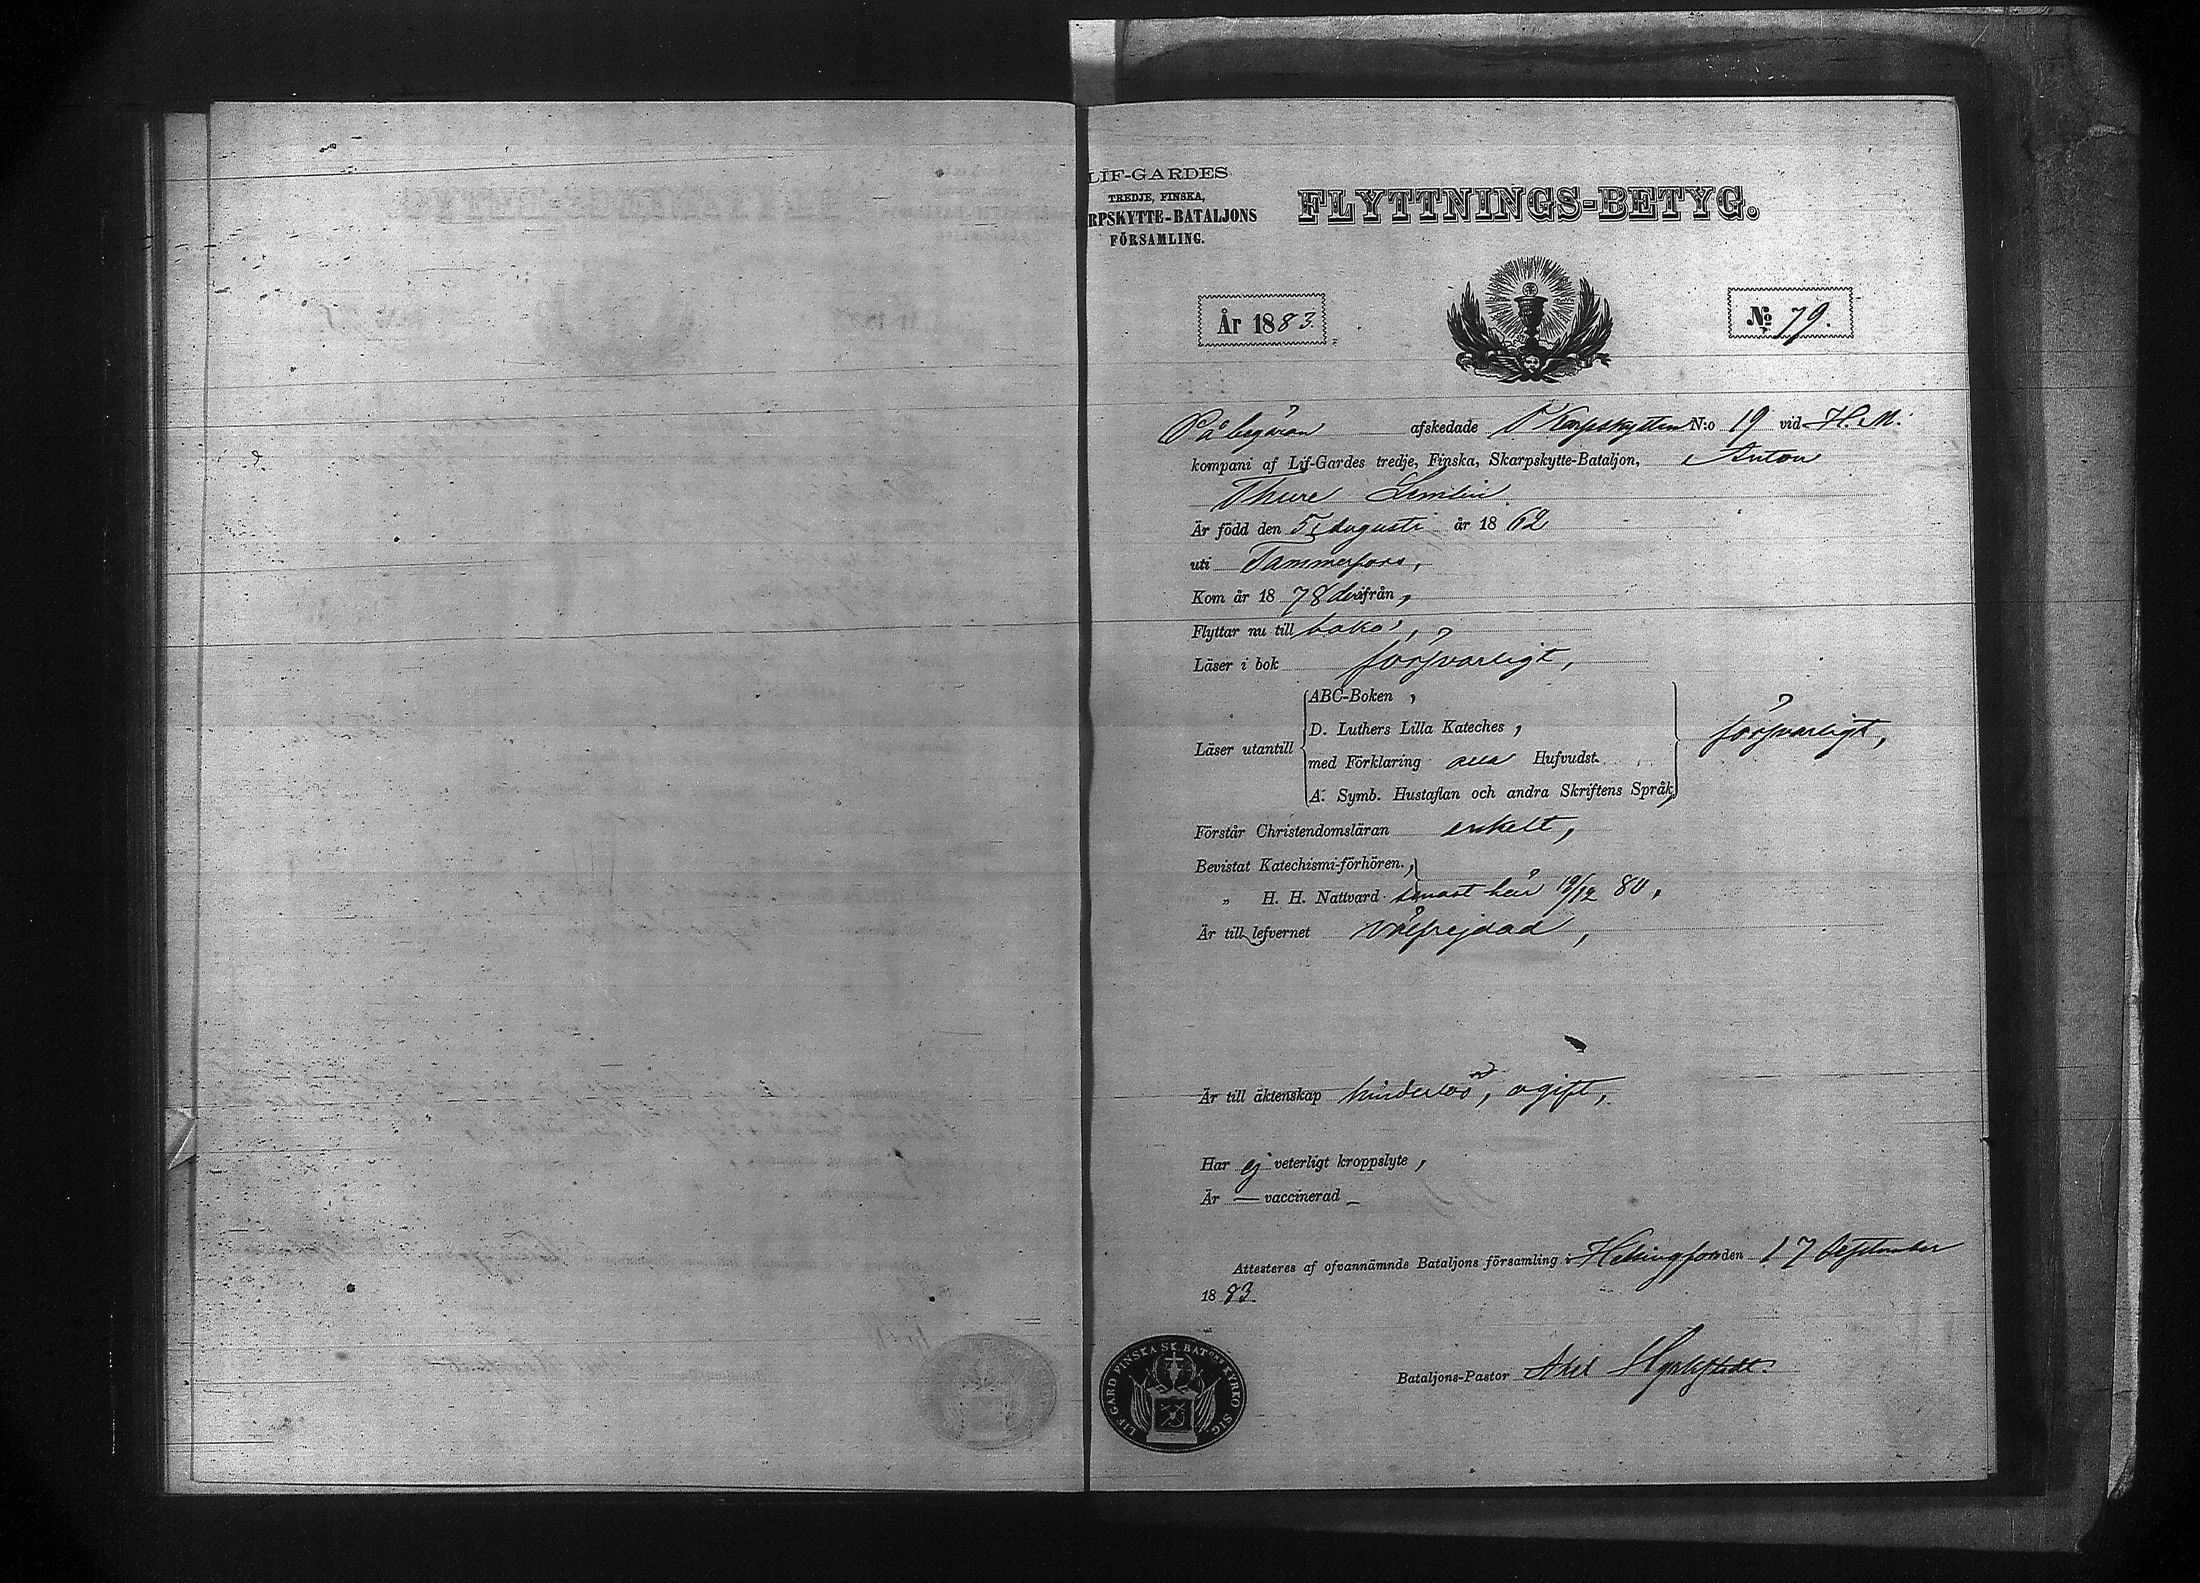 LIF-GARDES
TREDJE, FINSKA,
RPSKYTTE-BATALJONS
FÖRSAMLING.
FLYTTNINGS-BETYG.
År 1883.
No 79.
På begäran afskedade N:o 19 vid H. M.
kompani af Lif-Gardes tredje, Finska, Skarpskytte-Bataljon, Anton
Thure
Är född den 5 Augusti år 1862
uti Tammerfors,
Kom år 1878 derifrån,
Flyttar nu till
Läser i bok försvarligt,
ABC-Boken,
D. Luthers Lilla Kateches,
Läser utantill
med Förklaring alla Hufvudst.
försvarligt,
A. Symb. Hustaflan och andra Skriftens Språk,
Förstår Christendomsläran enkelt,
Bevistat Katechismi-förhören.,
„ H. H. Nattvard senast här 19/12 80,
Är till lefvernet välfrejdad,
Är till äktenskap hinderlös, ogift,
Har ej veterligt kroppslyte,
Är — vaccinerad —
Attesteres af ofvannämnde Bataljons församling i Helsingfors den 17 September
1883.
Bataljons-Pastor Axel
LIF. GARD FINSKA SK. BAT:ONS KYRKO SIG.